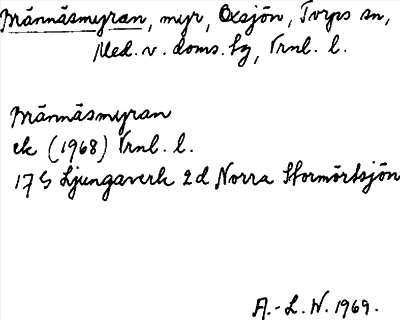 Brännäsmyran, myr, Oxsjön, Torps sn,
Med. v. doms. sg, Vrnl. l.
Brännäsmyran
ek (1968) Vrnl. l.
17 G Ljungaverk 2 d Norra Stormörtsjön
A.-L. N. 1969.